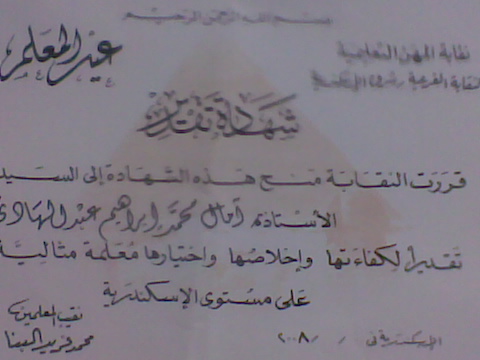 بسم الله الرحمن الرحيم
نقابة المهن التعليمية
عيد المعلم
النقابة الفرعية بشرق الإسكندرية
شهادة تقدير
قررت النقابة منح هذه الشهادة إلى السيد
الأستاذة آمال محمد إبراهيم عبد الهادي
تقديراً لكفاءتها وإخلاصها واختيارها معلمة مثالية
على مستوى الإسكندرية
نقيب المعلمين
محمد فريد البنا
الإسكندرية في / / ٢٠٠٨